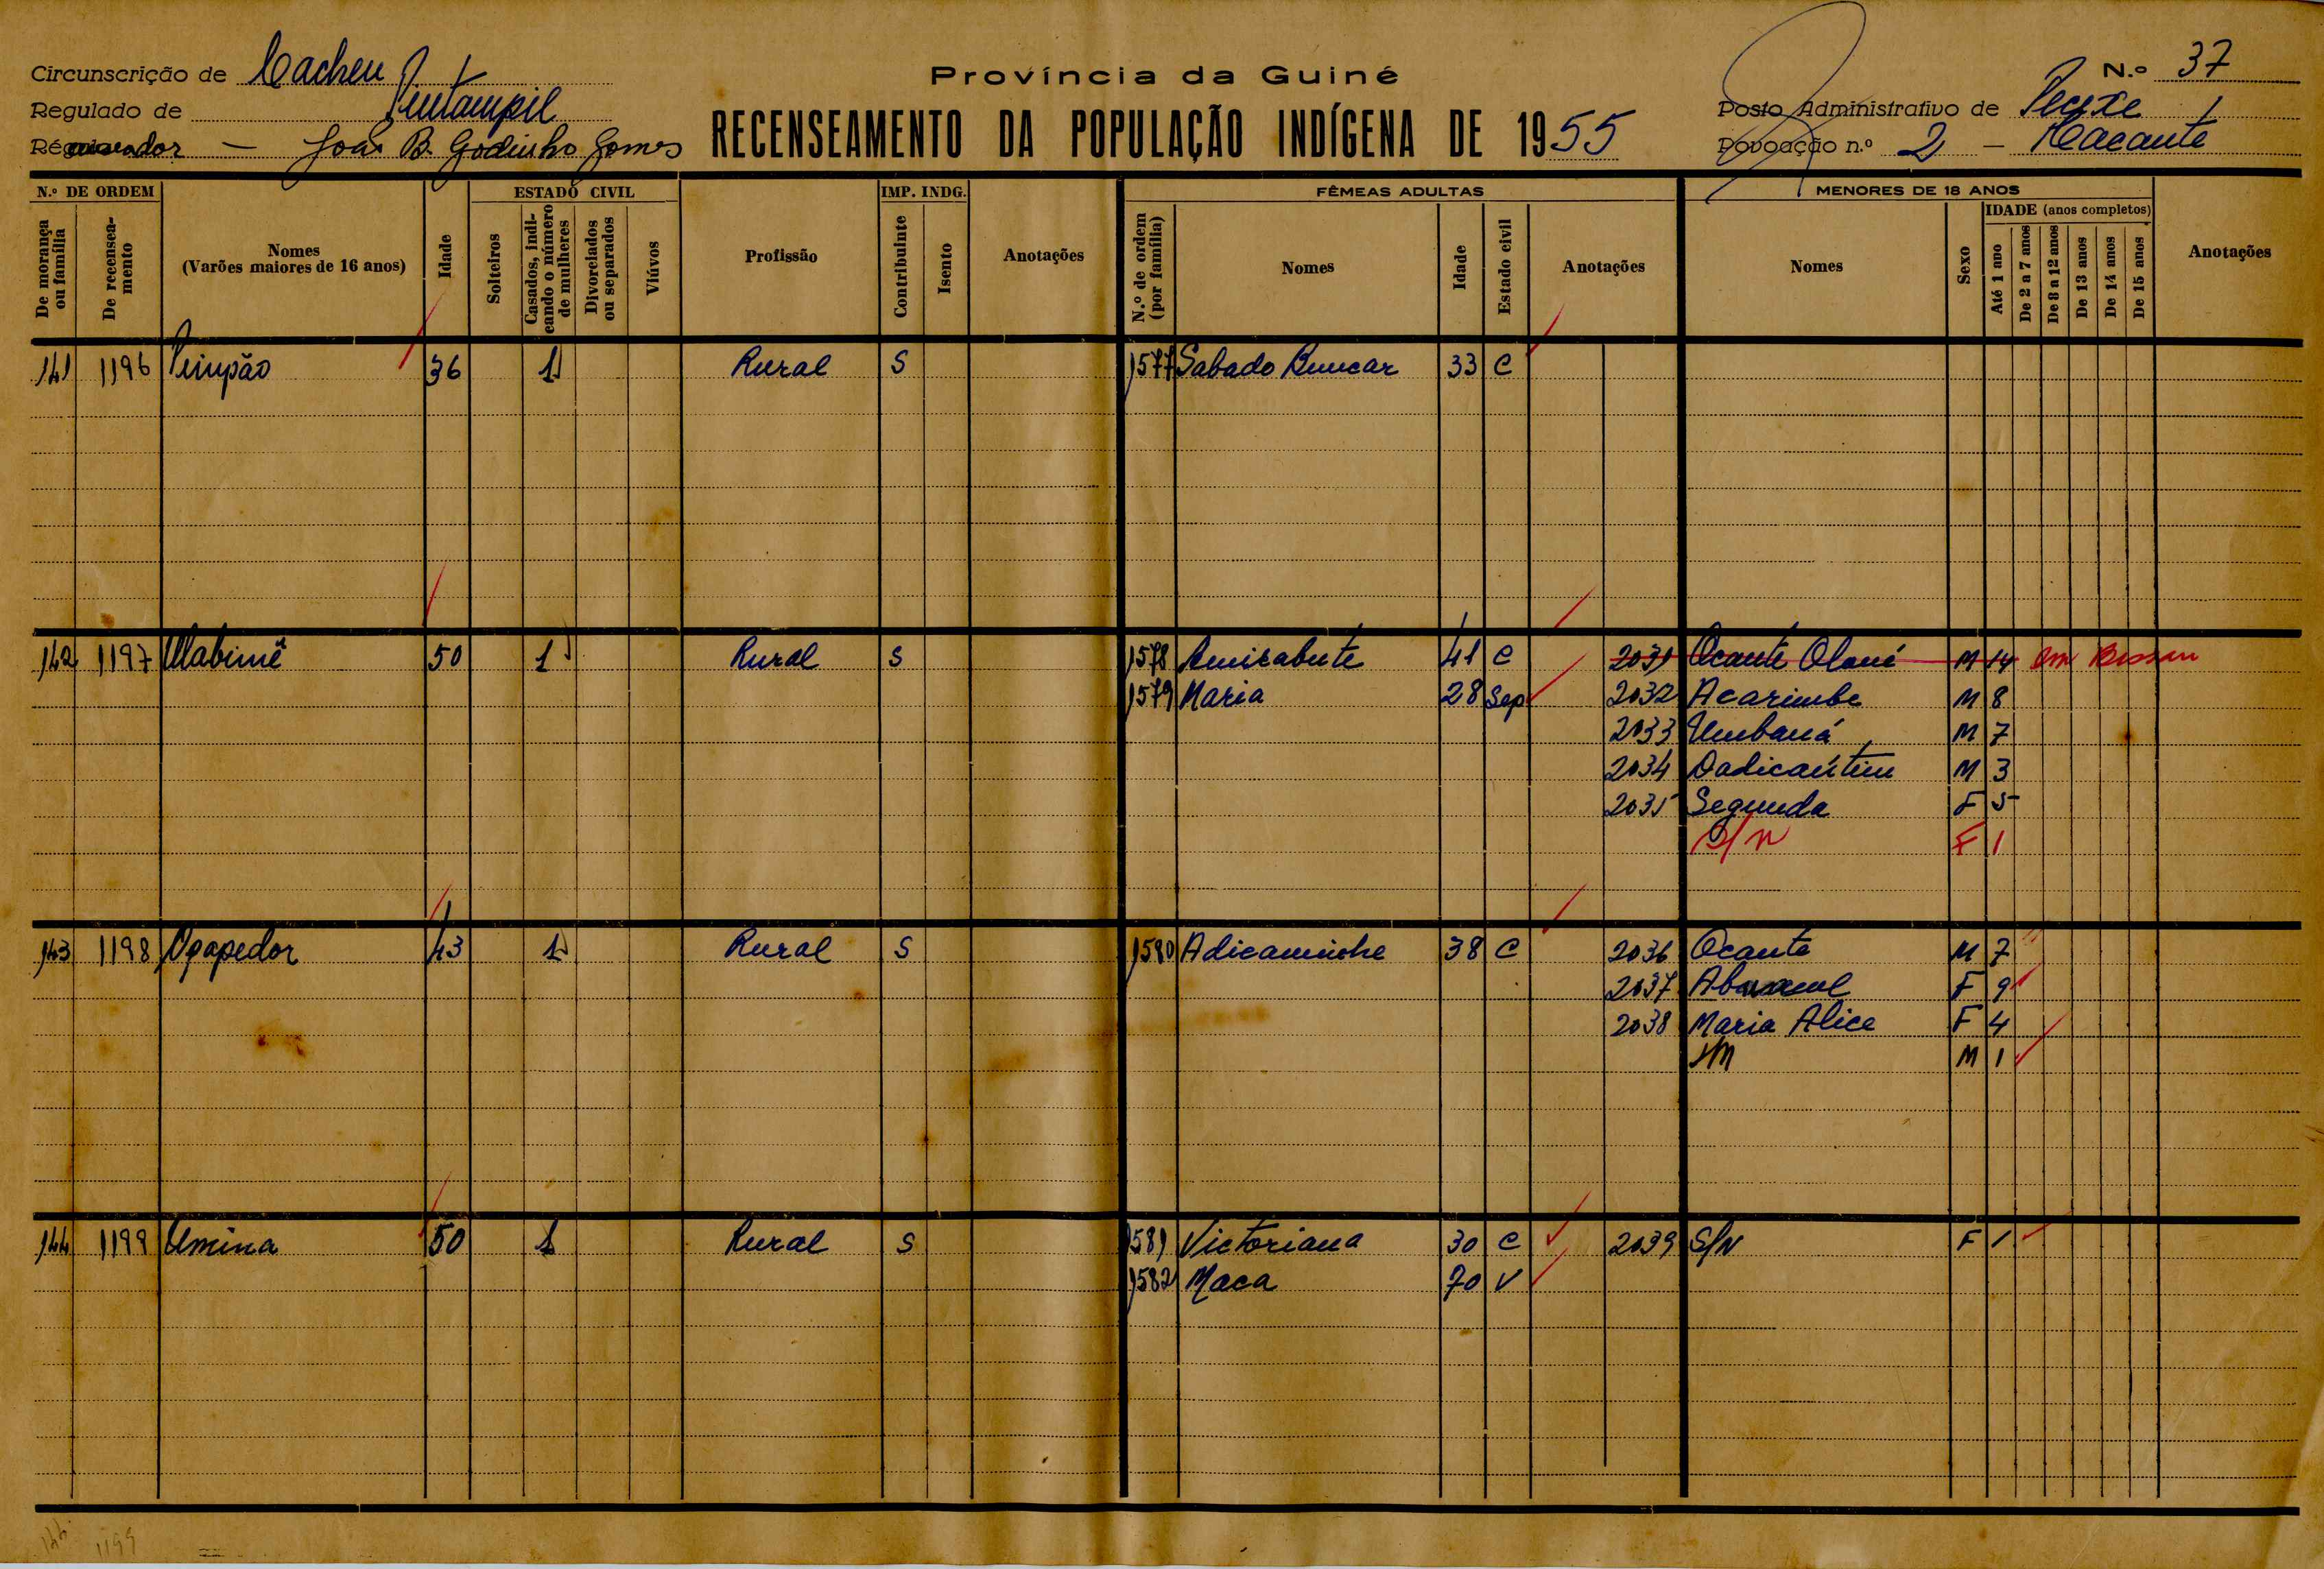 Circunscrição de Cacheu
Província da Guiné
N.º 37
Regulado de Pintampil
Posto Administrativo de Pecixe
João B. Godinho Gomes
RECENSEAMENTO DA POPULAÇÃO INDÍGENA DE 1955
Povoação n.º 2 - Cacante
N.º DE ORDEM
ESTADO CIVIL
IMP. INDG.
FÊMEAS ADULTAS
MENORES DE 18 ANOS
IDADE (anos completos)
De morança ou família
De recenseamento
Nomes (Varões maiores de 16 anos)
Idade
Solteiros
Casados, indicando o número de mulheres
Divorciados ou separados
Viúvos
Profissão
Contribuinte
Isento
Anotações
N.º de ordem (por família)
Nomes
Idade
Estado civil
Anotações
Nomes
Sexo
Até 1 ano
De 2 a 7 anos
De 8 a 12 anos
De 13 anos
De 14 anos
De 15 anos
Anotações
141 1196 Pimpão 36 1 Rural S 1577 Sabado Buncar 33 C
142 1197 Ulabimê 50 1 Rural S 1578 Amisabute 41 C 2031 Ocante Oloné M 14 Em Bissau
1579 Maria 28 Sep 2032 Acarimbe M 8
2033 Umbaná M 7
2034 Dadicantim M 3
2035 Segunda F 5
S/N F 1
143 1198 Ogapedor 43 1 Rural S 1580 Adicaminhe 38 C 2036 Ocante M 7
2037 F 9
2038 Maria Alice F 4
M 1
144 1199 Umina 50 1 Rural S 1581 Victoriana 30 C 2039 S/N F 1
1582 Maca 70 V
144 1199